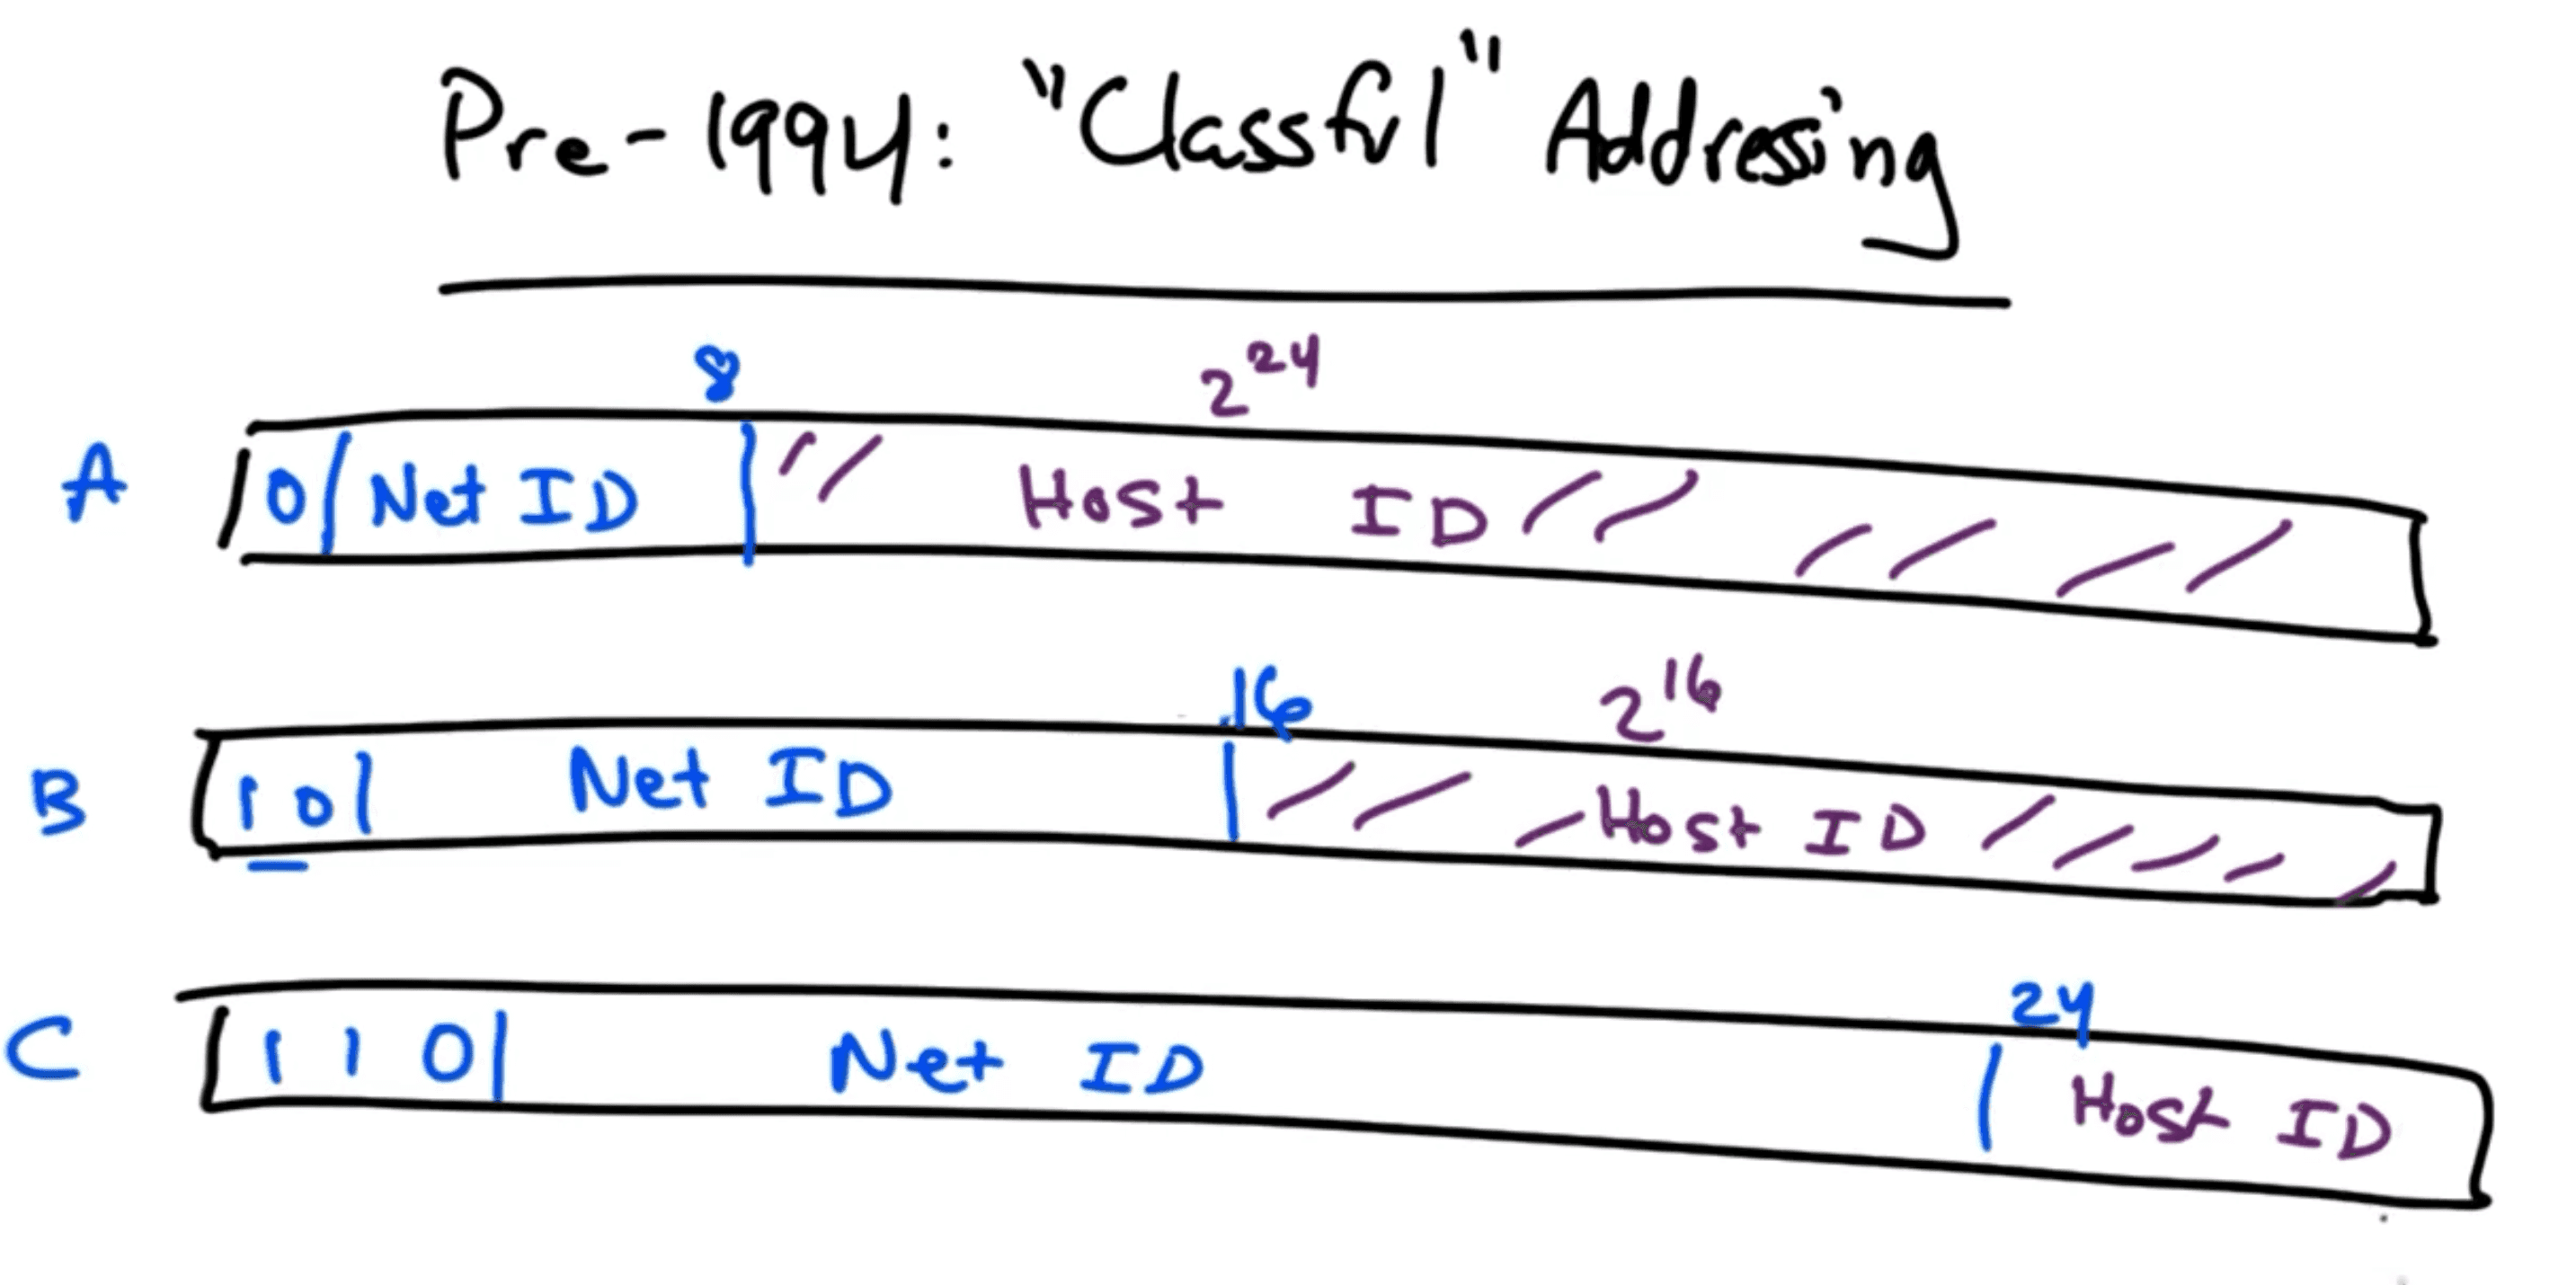 Pre-1994: "Classful" Addressing
8 2^24
A 0 Net ID Host ID
16 2^16
B 1 0 Net ID Host ID
24
C 1 1 0 Net ID Host ID